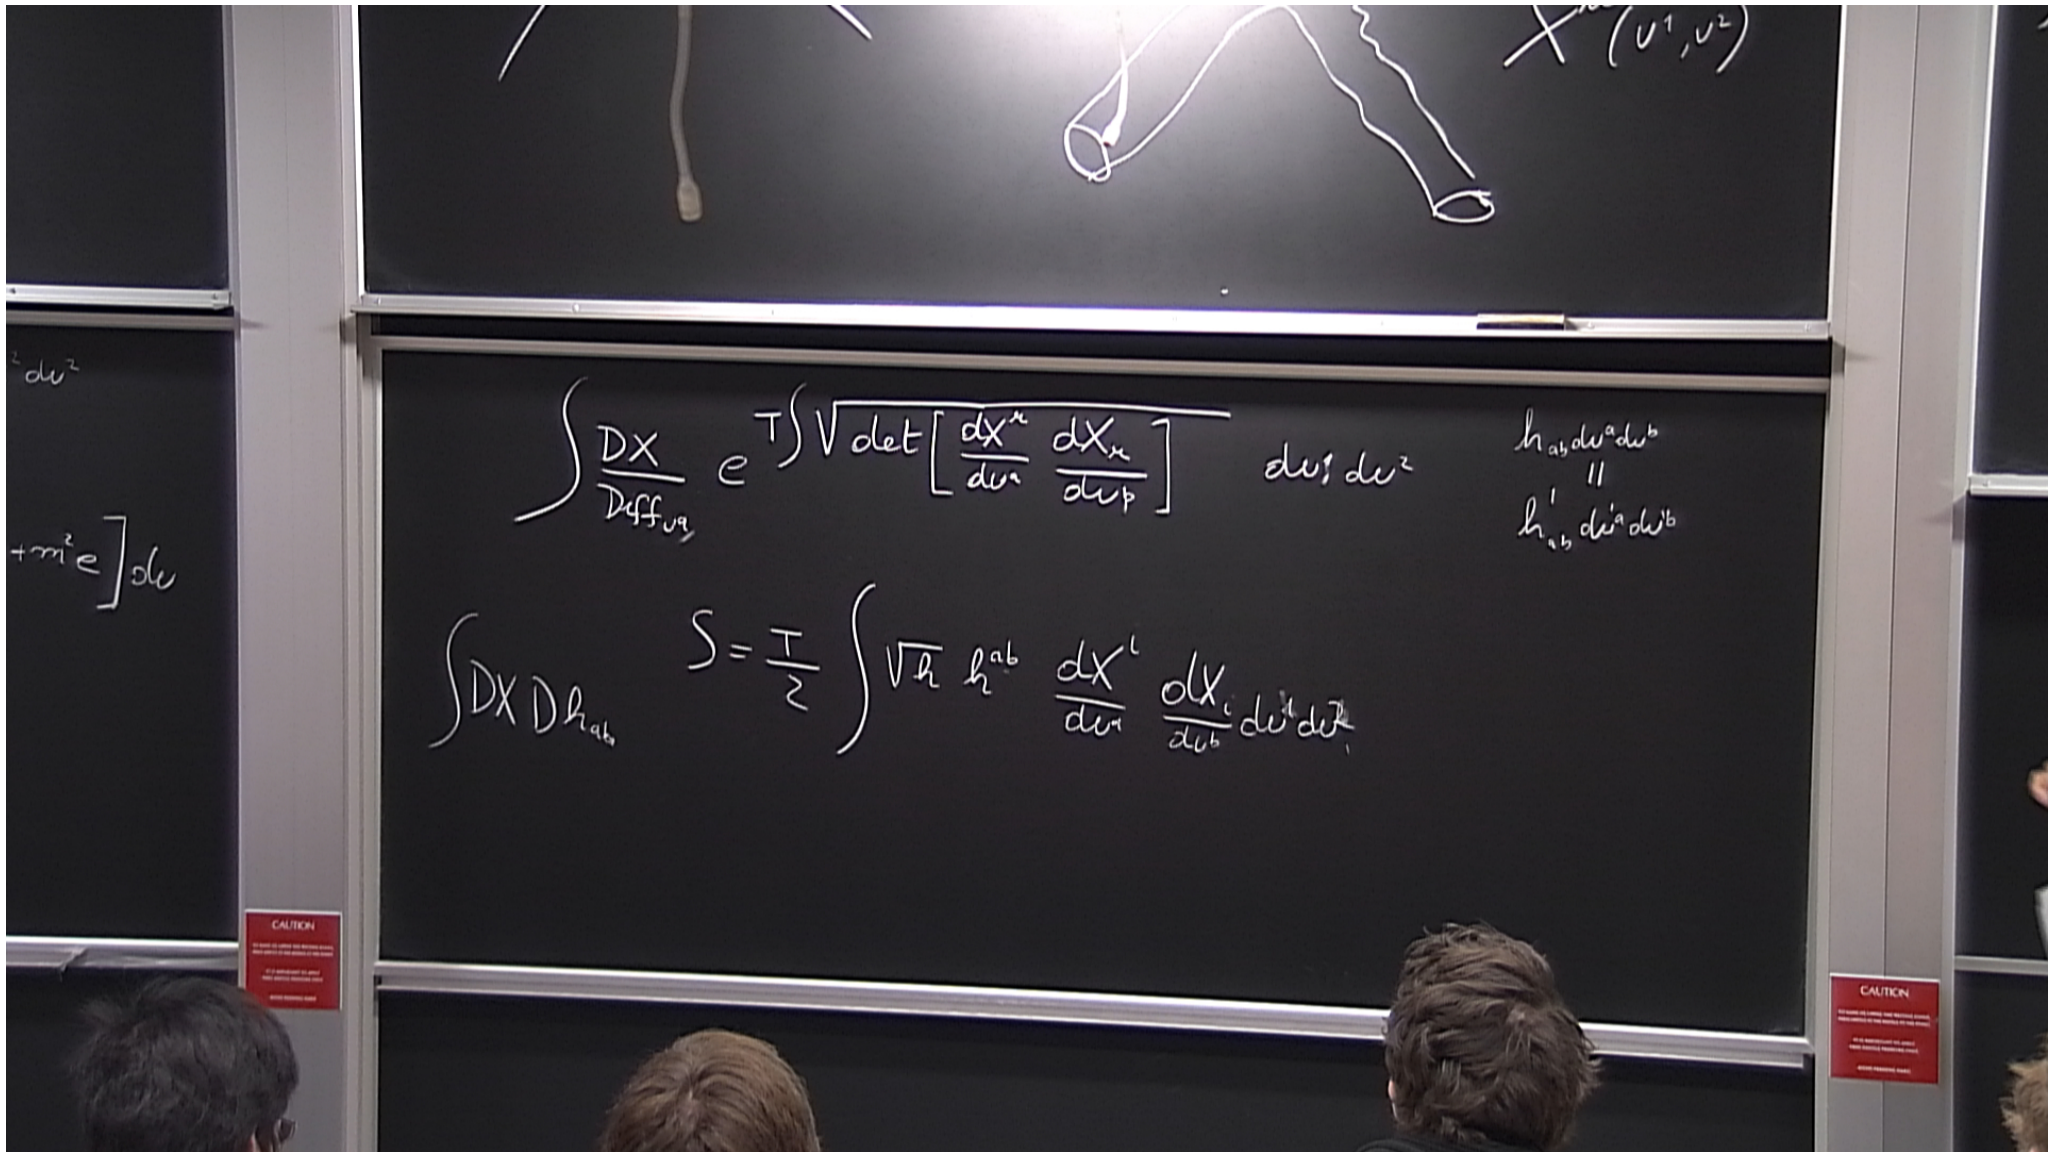 X^μ (υ¹, υ²)
² dυ²
+m²e] dυ
∫ DX/Diff_υᵃ e^{T∫√det[dX^μ/dυᵃ dX_μ/dυᵝ] dυ¹ dυ²}
h_ab dυᵃ dυᵇ
||
h'_ab dυ'ᵃ dυ'ᵇ
∫DX Dh_ab S = T/2 ∫ √h h^ab dXⁱ/dυᵃ dX_i/dυᵇ dυ¹ dυ²
CAUTION
CAUTION